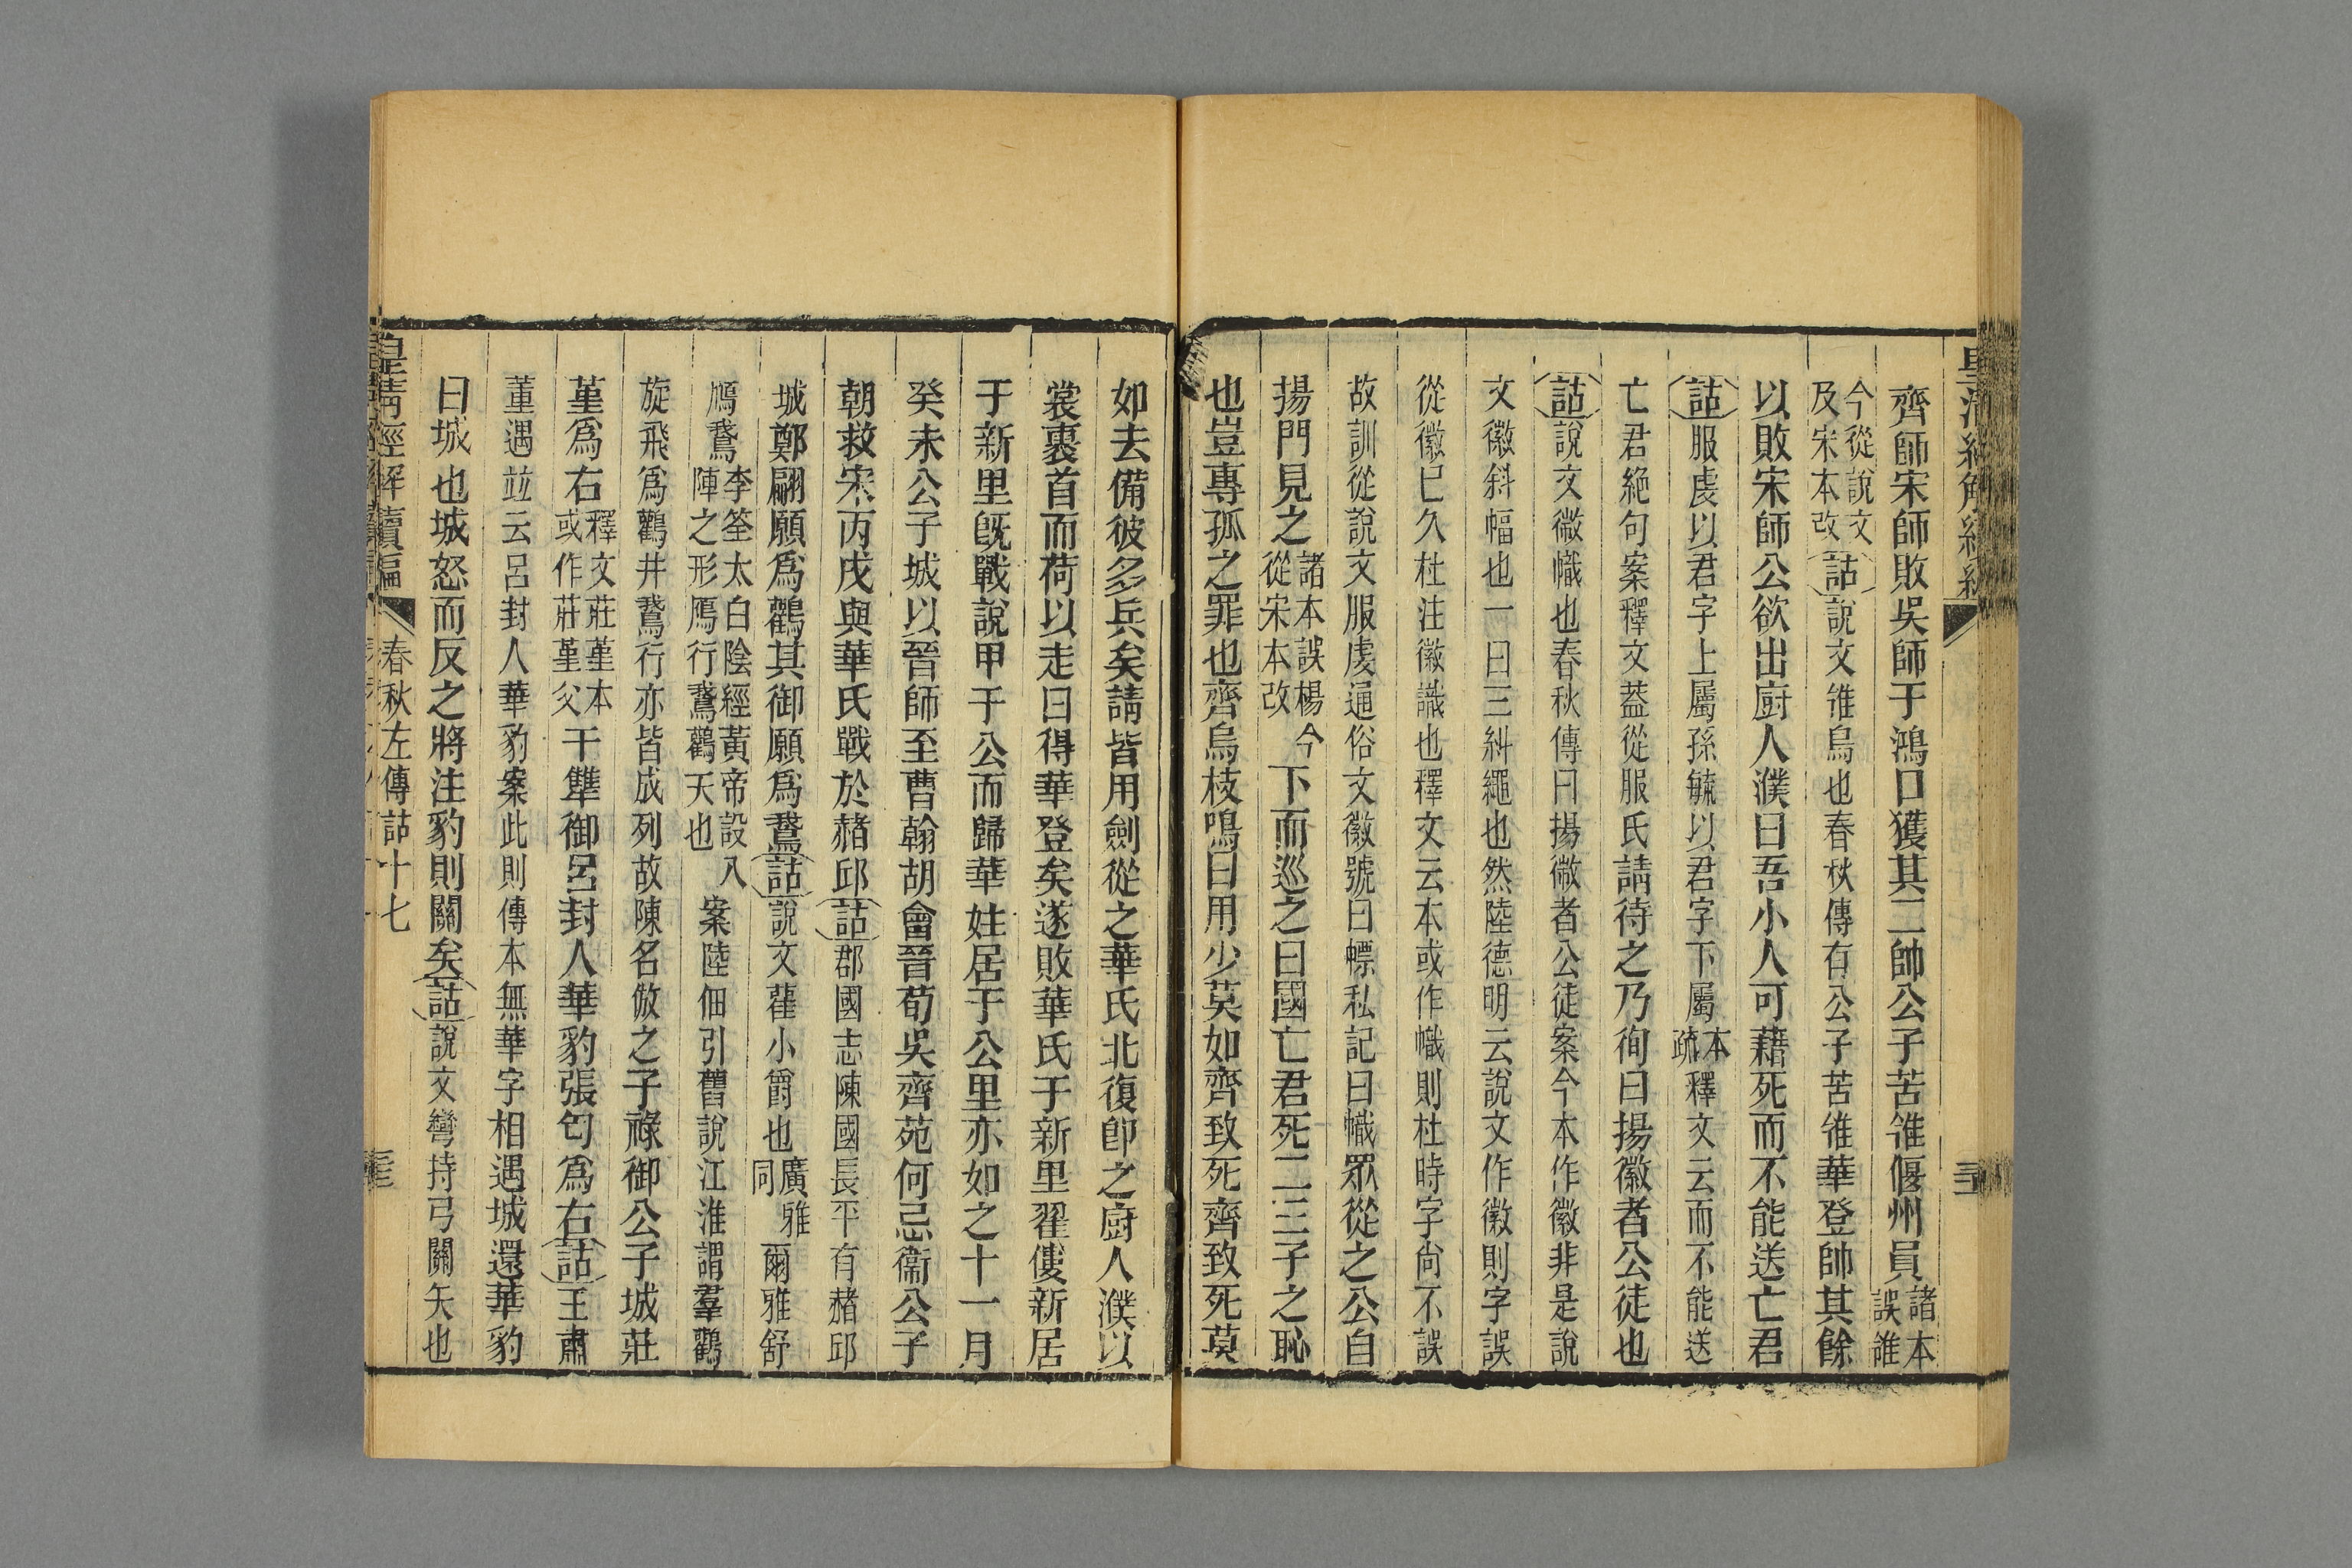 齊師宋師敗吳師于鴻口獲其二帥公子苦雂偃州員諸本誤雃
今從說文及宋本改詁說文雂鳥也春秋傳有公子苦雂華登帥其餘
以敗宋師公欲出廚人濮曰吾小人可藉死而不能送亡君
詁服虔以君字上屬孫毓以君字下屬本疏釋文云而不能送
亡君絶句案釋文葢從服氏請待之乃徇曰揚徽者公徒也
詁說文微幟也春秋傳曰揚微者公徒案今本作徽非是說
文徽斜幅也一曰三糾繩也然陸德明云說文作微則字誤
從徽已久杜注徽識也釋文云本或作幟則杜時字尙不誤
故訓從說文服虔通俗文徽號曰幖私記曰幟眾從之公自
揚門見之諸本誤楊今從宋本改下而巡之曰國亡君死二三子之恥
也豈專孤之罪也齊烏枝鳴曰用少莫如齊致死齊致死莫
如去備彼多兵矣請皆用劍從之華氏北復卽之廚人濮以
裳裹首而荷以走曰得華登矣遂敗華氏于新里翟僂新居
于新里旣戰說甲于公而歸華妵居于公里亦如之十一月
癸未公子城以晉師至曹翰胡會晉荀吳齊苑何忌衞公子
朝救宋丙戌與華氏戰於赭邱詁郡國志陳國長平有赭邱
城鄭翩願爲鸛其御願爲鵞詁說文雚小爵也廣雅同爾雅舒
鴈鵞李筌太白陰經黃帝設入陣之形鴈行鵞鸛天也案陸佃引舊說江淮謂羣鸛
旋飛爲鸛井鵞行亦皆成列故陳名倣之子祿御公子城莊
堇爲右釋文莊堇本或作莊堇父干犨御呂封人華豹張匄爲右詁王肅
董遇並云呂封人華豹案此則傳本無華字相遇城還華豹
曰城也城怒而反之將注豹則關矣詁說文彎持弓關矢也
皇淸經解續編 春秋左傳詁十七